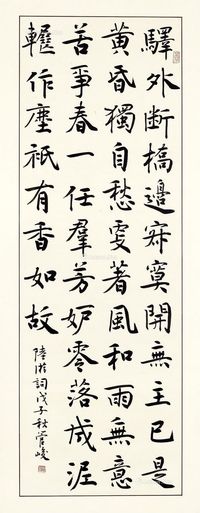 驛外断橋邉寂寞開無主已是
黄昏獨自愁更著風和雨無意
苦爭春一任羣芳妒零落成泥
輾作塵祇有香如故
陸游詞戊子秋管峻